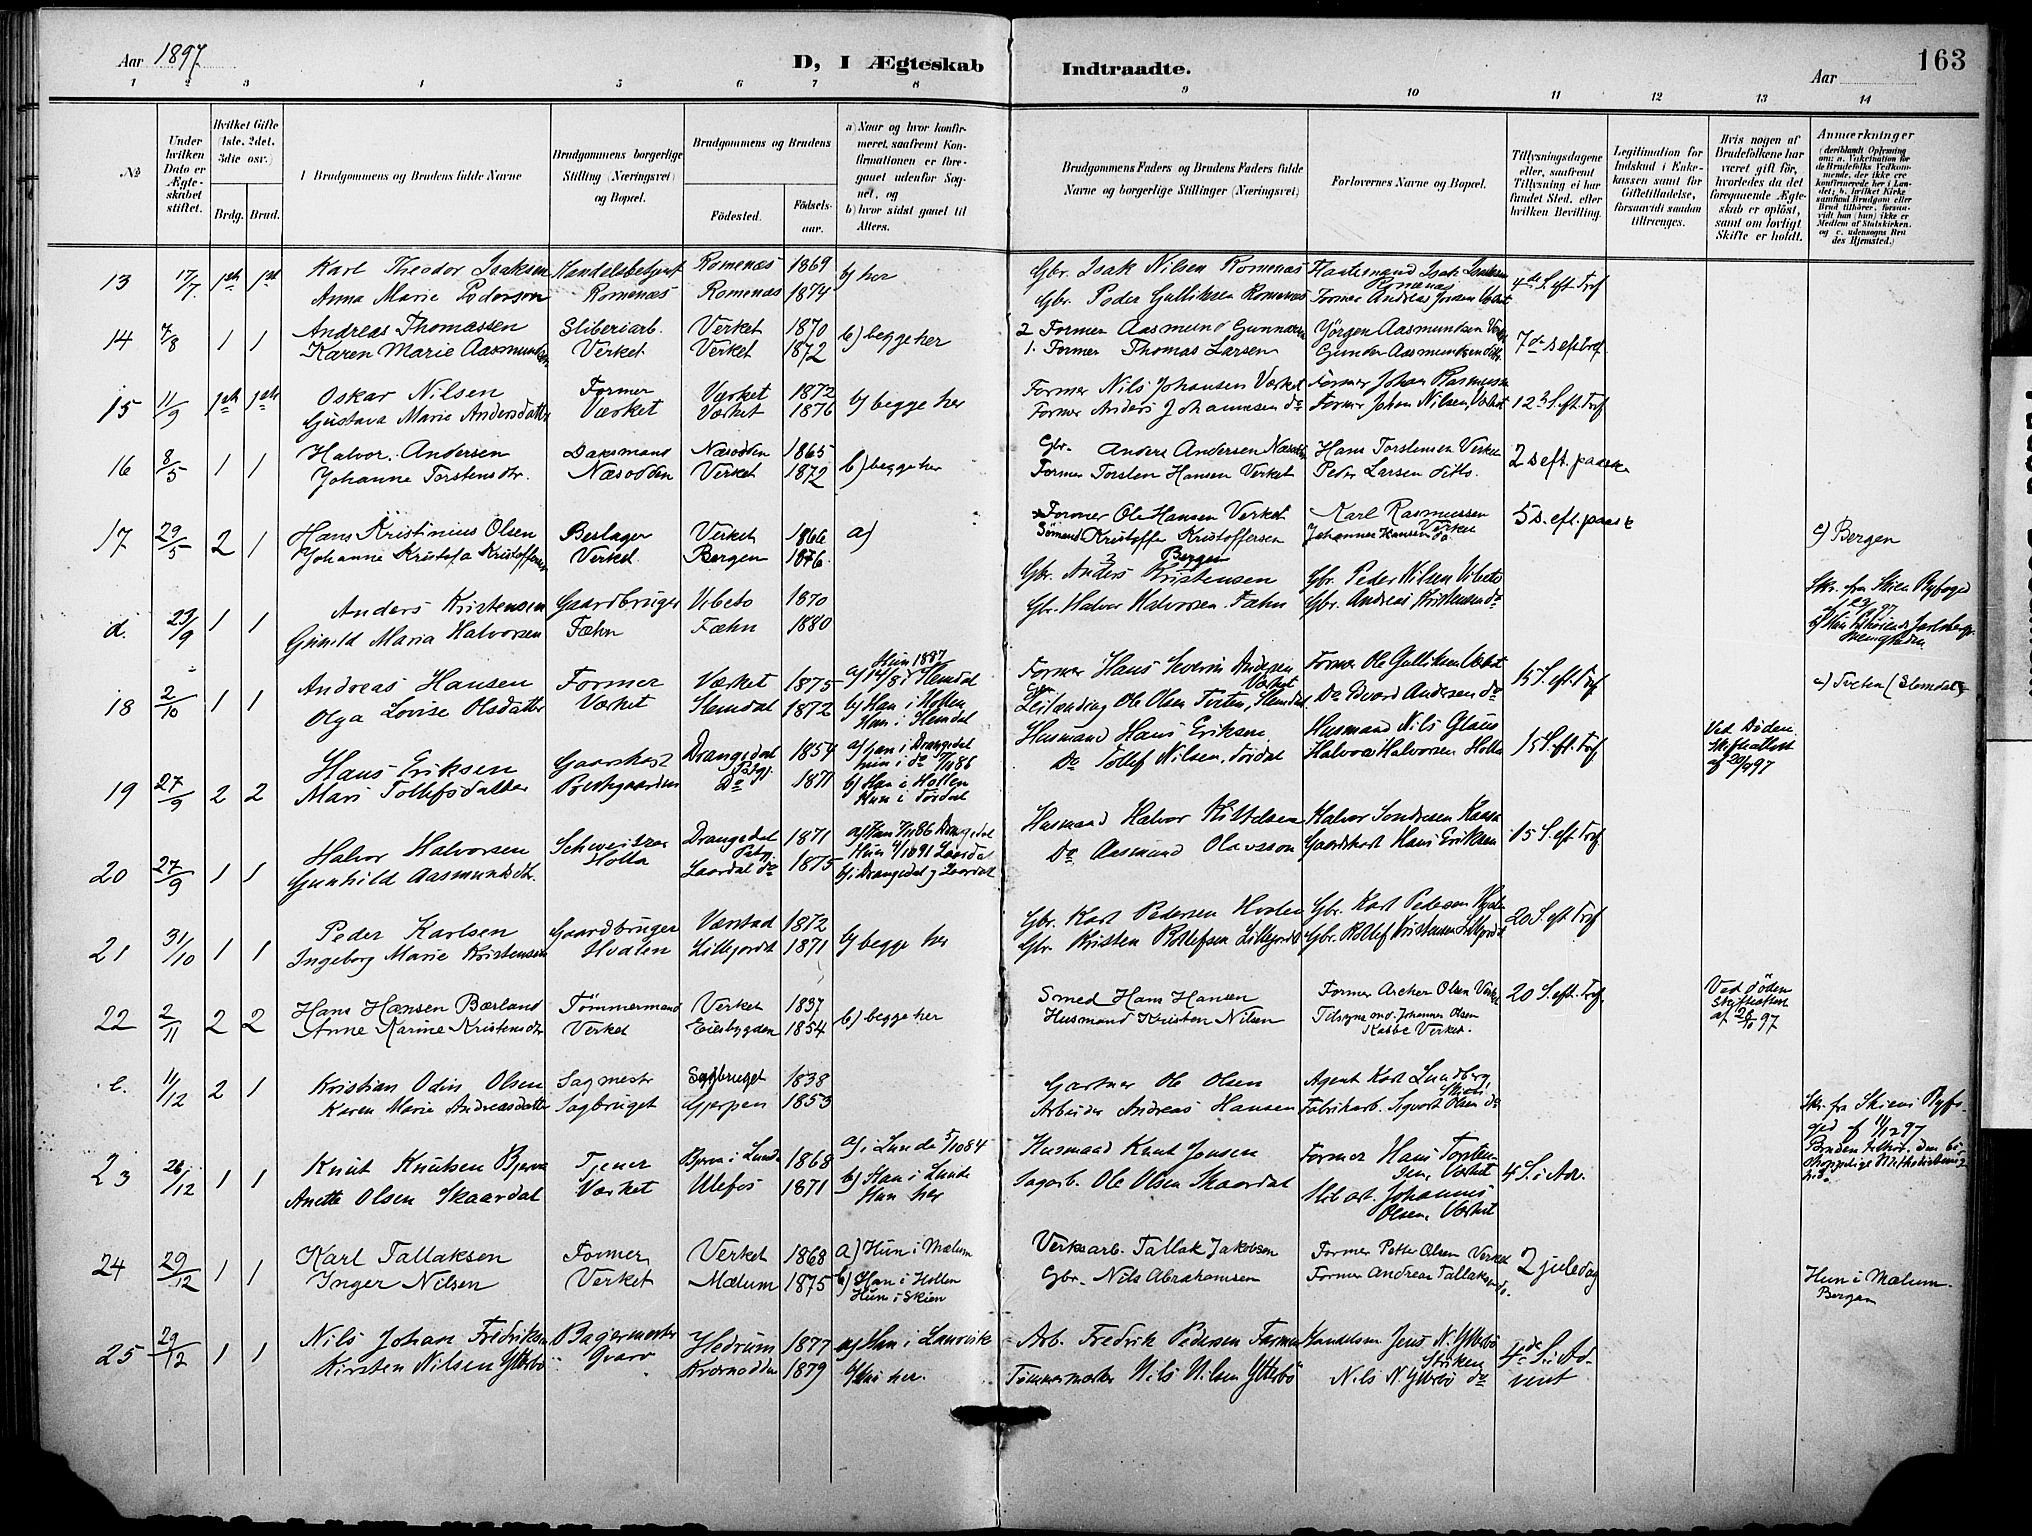 Aar 1897
D, I Ægteskab
Indtraadte.
Aar
163
1 2 3 4 5 6 7 8 9 10 11 12 13 14
No
Under hvilken Dato er Ægteskabet stiftet.
Hvilket Gifte (1ste, 2det, 3die osv.)
Brdg. Brud.
1 Brudgommens og Brudens fulde Navne
Brudgommens borgerlige Stilling (Næringsvei) og Bopæl.
Brudgommens og Brudens
Födested.
Födsels-aar.
a) Naar og hvor konfirmeret, saafremt Konfirmationen er foregaaet udenfor Sognet, og
b) hvor sidst gaaet til Alters.
Brudgommens Faders og Brudens Faders fulde Navne og borgerlige Stillinger (Næringsvei)
Forlovernes Navne og Bopæl.
Tillysningsdagene eller, saafremt Tillysning ei har fundet Sted, efter hvilken Bevilling.
Legitimation for Indskud i Enkekassen samt for Giftetilladelse, forsaavidt saadan tiltrænges.
Hvis nogen af Brudefolkene har været gift før, hvorledes da det foregaaende Ægteskab er oplöst, samt om lovligt Skifte er holdt.
Anmærkninger
13 17/7 1ste 1ste Karl Theodor Isaksen Handelsbetjent Romenæs 1869 b) her Gbr. Isak Nilsen Romenæs Isak Isaksen Romenæs 4de S. eft. Tref
Anna Marie Pedersen Romenæs Romenæs 1874 Gbr. Peder Gulliksen Romenæs Former Andreas Jensen Værket
14 7/8 1 1 Andreas Thomassen Sliberiarb. Verket 1870 b) begge her 2 Former Aasmund Gunnarsen Jörgen Aasmundsen Verket 7de s eft tref.
Karen Marie Aasmundsdtr Verket Verket 1872 1. Former Thomas Larsen Gunder Aasmundsen ditto
15 11/9 1ste 1ste Oskar Nilsen Former Værket 1872 b) begge her Former Nils Johansen Værket Former Johan Rasmussen 12 S. eft. Tref
Gustava Marie Andersdatter Værket Værket 1876 Former Anders Johannesen do Former Johan Nilsen, Værket
16 8/5 1 1 Halvor Andersen Dagsmand Næsodden 1865 b) begge her Gbr. Anders Andersen Næsodden Hans Torstensen Verket 2 s eft. paaske
Johanne Torstensdtr. Næsodden Verket 1872 Former Torsten Hansen Verket Peder Larsen ditto.
17 29/5 2 1 Hans Kristinius Olsen Beslager Verket 1866 a) Former Ole Hansen Verket Karl Rasmussen Verket 5 s. eft. paaske c) Bergen
Johanne Kristofa Kristoffersen Verket Bergen 1876 Sömand Kristoffer Kristoffersen Bergen Johannes Hansen do.
d. 23/9 1 1 Anders Kristensen Gaardbruger Vibeto 1870 Gbr. Anders Kristensen Gbr. Peder Nilsen Vibeto Skr. fra Skien Byfoged
Gunild Maria Halvorsen Fæhn Fæhn 1880 Gbr. Halvor Halvorsen Fæhn Gbr. Andreas Kristensen do
18 2/10 1 1 Andreas Hansen Former Værket 1875 a) Hun 1887 14/8 i Slemdal Former Hans Severin Andersen Værket Former Ole Gulliksen Værket 15 S. eft. Tref c) Tveten (Slemdal)
Olga Lovise Olsdatter Værket Slemdal 1872 b) Han i Hollen Hun i Slemdal Ole Olsen Tveten, Slemdal Do Edvard Andersen do
19 27/9 2 2 Hans Eriksen Gaardskar Drangedal 1854 a) han i Drangedal hun i do 17/10 86 Husmand Hans Eriksen Husmand Nils Glaus 15 S. eft. Tref Ved Döden Skifteattest af 20/9 97
Mari Tollefsdatter Præstegaarden Do 1871 b) Han i Hollen Hun i Tördal Do Tollef Nilsen, Tördal Halvor Halvorsen Holla
20 27/9 1 1 Halvor Halvorsen Schweitzer Drangedal 1871 a) Han 7/10 86 Drangedal Husmand Halvor Kittelsen Halvor Sondresen Kaasa 15 S. eft. Tref
Gunhild Aasmundsdtr. Holla Laardal do 1875 Hun 4/10 91 Laardal b) i Drangedal & Laardal Do Aasmund Olavsson Gaardskarl Hans Eriksen
21 31/10 1 1 Peder Karlsen Gaardbruger Værstad 1872 b) begge her Gbr. Karl Pedersen Hvalen Gbr. Karl Pedersen Hvalen 20 S. eft. Tref
Ingeborg Marie Kristensen Hvalen Lillejordet 1871 Gbr. Kristen Rollefsen Lillejordet Gbr. Rollef Kristensen Lillejordet
22 2/11 2 2 Hans Hansen Bærland Tömmermand Verket 1837 b) begge her Smed Hans Hansen Former Archer Olsen Verket 20 S. eft. Tref. Ved döden Skifteattest af 28/10 97
Anne Karine Kristensdtr Verket Eiesbygden 1854 Husmand Kristen Nilsen Tilsynsmd. Johannes Olsen Kabbe Verket.
e. 11/12 2 1 Kristian Odin Olsen Sagmestr Sagbruget 1838 Gartner Ole Olsen Agent Karl Lundberg, Skien
Karen Marie Andreasdatter Sagbruget Gjerpen 1853 Arbeider Andreas Hansen Fabrikarb. Sigvart Olsen do Skr. fra Skiens Byfoged af 11/12 97
23 26/12 1 1 Knut Knutsen Bjerva Tjener Bjerva i Lunde 1868 a) i Lunde 5/10 84 Husmand Knut Jonsen Former Hans Torstensen, Værket 4 S. i Adv.
Anette Olsen Skaardal Værket Ulefos 1871 b) Han i Lunde Hun her Sagarb. Ole Olsen Skaardal Slib arb. Johannes Olsen, Værket
24 29/12 1 1 Karl Tallaksen Former Verket 1868 a) Hun i Mælum Verksarb. Tallak Jakobsen Former Petter Olsen Verket 2 juledag Hun i Mælum. Bergan
Inger Nilsen Verket Mælum 1875 b) Han i Hollen Hun i Skien Gbr. Nils Abrahamsen Former Andreas Tallaksen do.
25 29/12 1 1 Nils Johan Fredriksen Bagermester Hedrum 1877 a) Han i Laurvik Arb. Fredrik Pedersen Farmen Handelsm. Jens N. Ytterbö 4de S. i Advent
Kirsten Nilsen Ytterbö Kværnodden 1879 b) her. Tömmermester Nils Nilsen Ytterbö Nils N. Ytterbö do